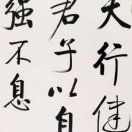 天行健
君子以自
强不息